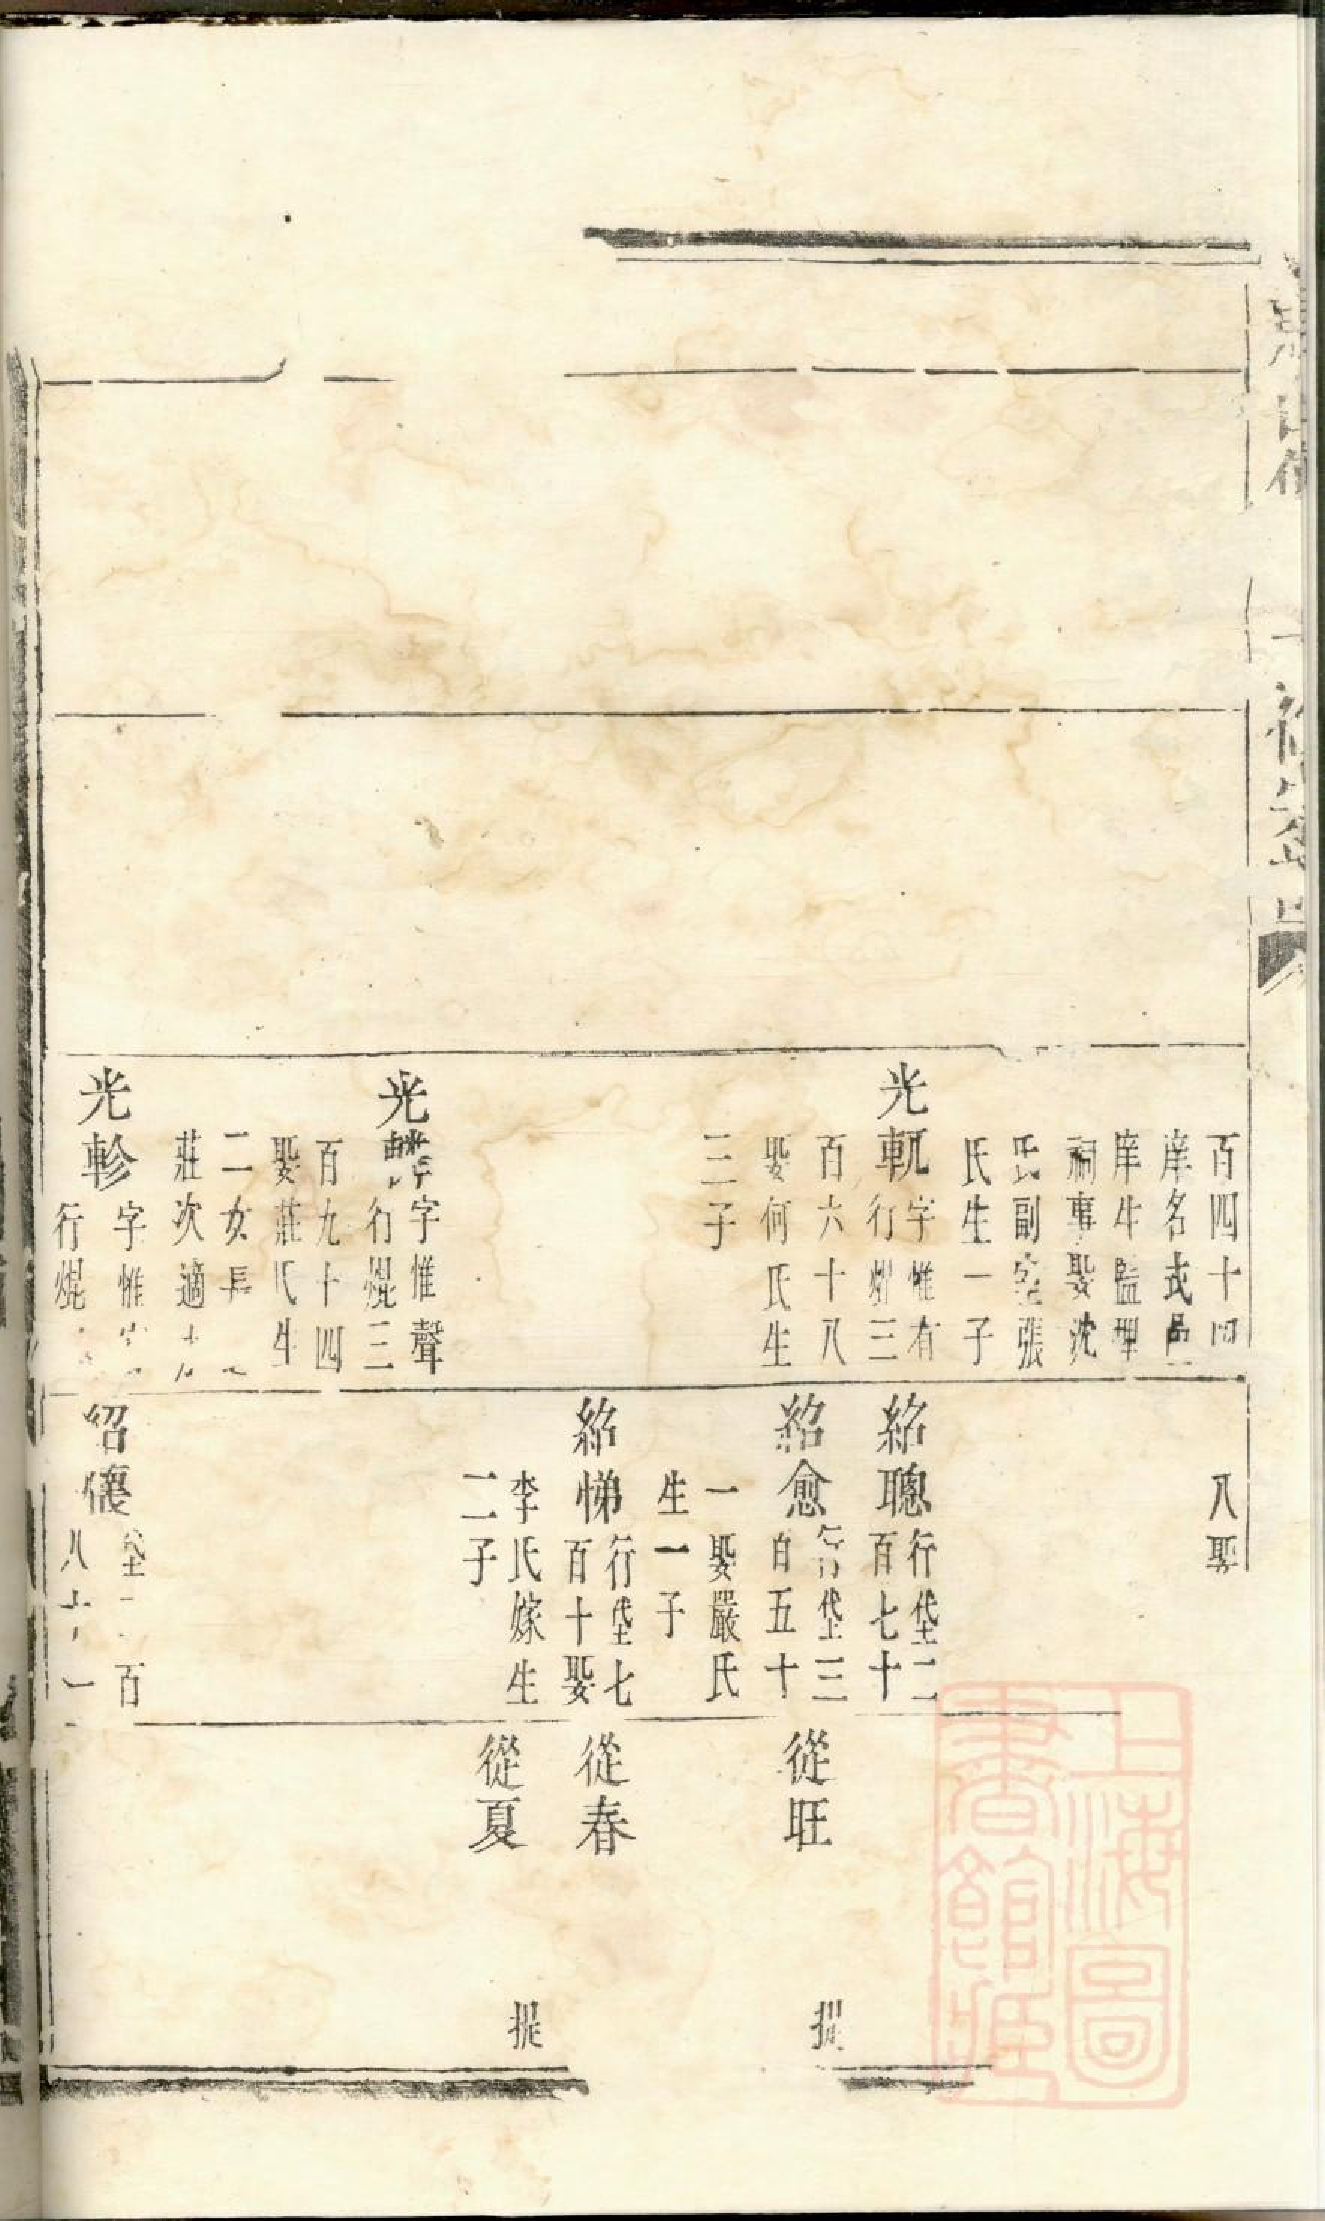 百四十四
庠名式
庠生監理
祠事娶沈
氏副室張
氏生一子
光軏字惟有
行焜三
百六十八
娶何氏生
三子
光
字惟聲
行焜三
百九十四
娶莊氏生
二女長
莊次適
光軫字惟
行焜
八娶
紹聰行垡二
百七十
紹愈行垡三
百五十
一娶嚴氏
生一子
紹悌行垡七
百十娶
李氏嫁生
二子
紹儴垡一百
八十一
從旺
提
從春
從夏
提
上海圖
書館藏